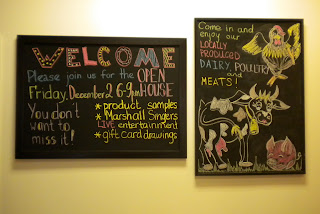 WELCOME
Please join us for the OPEN HOUSE
Friday, December 2 6-9pm
You don't want to miss it!
* product samples
* Marshall Singers
LIVE entertainment
* gift card drawings
Come in and
enjoy our
LOCALLY
PRODUCED
DAIRY, POULTRY
and
MEATS!